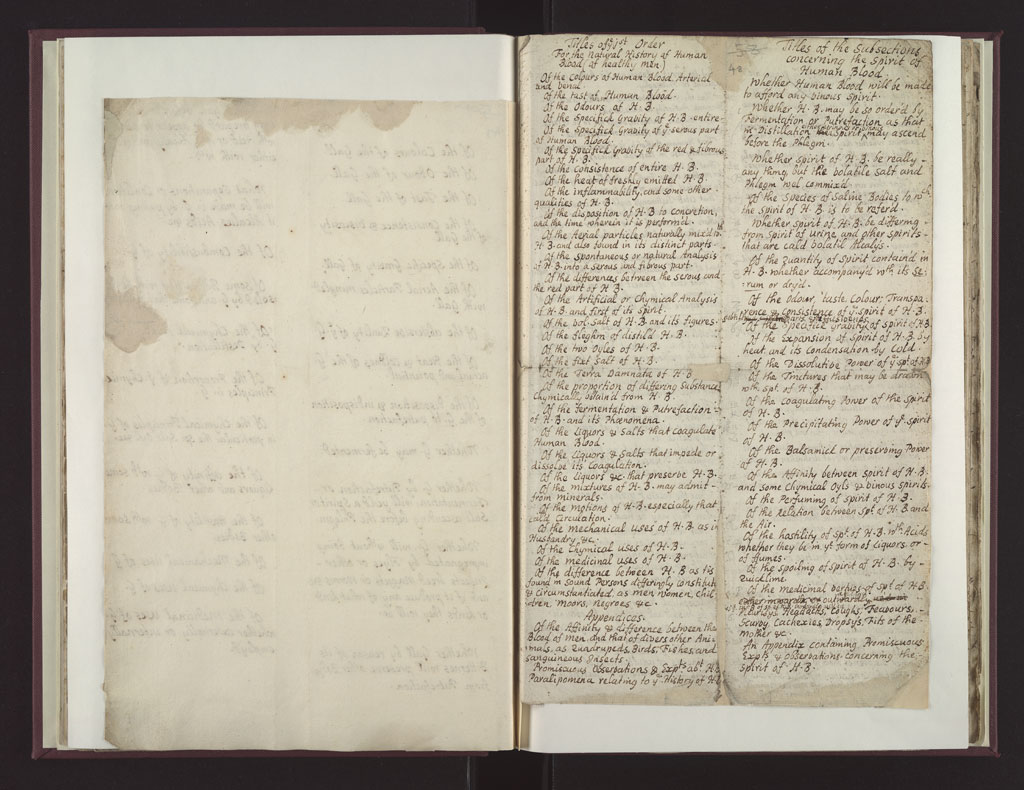 Titles of ye 1st Order
For the Natural History of Human
Blood of healthy men
Of the Colours of Human Blood Arterial
and Venal
Of the tast of Human Blood.
Of the Odours of H. B.
Of the Specifick Gravity of H. B. entire
Of the Specifick Gravity of ye serous part
of Human Blood
Of the Specifick Gravity of the red & fibrous
part of H. B.
Of the Consistence of entire H. B.
Of the heat of freshly emitted H. B.
Of the inflammability, and some other
qualities of H. B.
Of the disposition of H. B. to concretion,
and the time wherein it is perform'd.
Of the Aerial particles naturally mix'd wth
H. B. and also found in its distinct parts
Of the spontaneous or natural Analysis
of H. B. into a serous and fibrous part.
Of the differences between the serous and
the red part of H. B.
Of the Artificial or Chymical Analysis
of H. B. and first of its spirit.
Of the Vol. Salt of H. B. and its figures.
Of the Phlegm of distild H. B.
Of the two Oyles of H. B.
Of the fixt Salt of H. B.
Of the Terra Damnata of H. B
Of the proportion of differing Substances
Chymically obtain'd from H. B.
Of the Fermentation & Putrefaction
of H. B. and its Phænomena.
Of the Liquors & Salts that coagulate
Human Blood.
Of the Liquors & Salts that impede or
dissolve its Coagulation.
Of the Liquors &c. that preserve H. B.
Of the mixtures of H. B. may admit
from minerals.
Of the motions of H. B. especially that
calld Circulation.
Of the mechanical uses of H. B. as in
Husbandry &c.
Of the Chymical uses of H. B.
Of the medicinal uses of H. B.
Of the difference between H. B. as tis
found in sound Persons differingly Constitut
& Circumstantiated, as men women, Chil
dren, moors, Negroes &c.
Appendices.
Of the Affinity & difference between the
Blood of men, and that of divers other Ani
mals, as Quadrupeds, Birds, Fishes, and
sanguineous Insects
Promiscuous Observations & Expts abt H. B
Paralipomena relating to ye History of H. B
48
Titles of the Subsections
concerning the Spirit of
Human Blood
Whether Human Blood will be made
to afford any vinous Spirit.
Whether H. B. may be so order'd by
Fermentation or Putrefaction as that
in Distillation Spirit may ascend
before the Phlegm.
Whether Spirit of H. B. be really
any thing but the volatile Salt and
Phlegm wel commix'd
Of the Species of Saline Bodies to wch
the Spirit of H. B. is to be referd.
Whether Spirit of H. B. be differing
from Spirit of Urine, and other Spirits
that are calld volatil Alcalys.
Of the quantity of Spirit containd in
H. B. whether accompany'd wth its Se-
rum or dry'd.
Of the Odour, taste, Colour, Transpa-
rence & Consistence of ye Spirit of H. B.
Of the Specifick gravity of Spirit of H. B.
Of the Expansion of Spirit of H. B. by
heat and its condensation by Cold
Of the Dissolutive Power of ye Spt. of H. B.
Of the Tinctures that may be drawn
wth Spt. of H. B.
Of the Coagulating Power of the Spirit
of H. B.
Of the Precipitating Power of ye Spirit
of H. B.
Of the Balsamick or preserving Power
of H. B.
Of the Affinity between spirit of H. B.
and some Chymical Oyls & vinous Spirits
Of the Perfuming of Spirit of H. B.
Of the Relation between spt of H. B. and
the Air.
Of the hostility of Spt. of H. B. wth Acids
whether they be in ye form of Liquors or
of Fumes.
Of the spoiling of Spirit of H. B. by
Quicklime
Of the medicinal vertues of spt of H. B.
either inwardly or outwardly
Pleurisys Headachs, Coughs, Feavours,
Scurvy, Cachexies, Dropsys, Fits of the
mother &c.
An Appendix containing Promiscuous
Expts & Observations concerning the
Spirit of H. B.